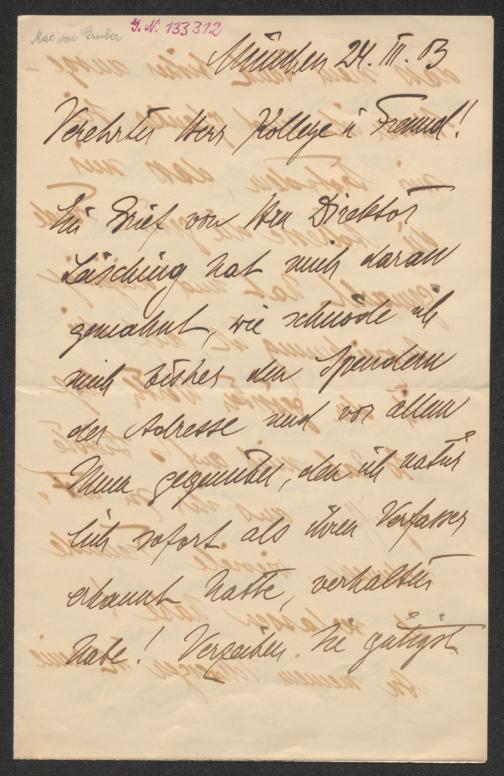 Max von Gruber
I. N. 133312
München 24. III. 03
Verehrter Herr Kollege u Freund!
Ein Brief von Herrn Direktor
Lösching hat mich daran
gemahnt, wie schnöde ich
mich bisher den Spendern
der Adresse und vor allem
Ihnen gegenüber, den ich natür
lich sofort als ihren Verfasser
erkannt hatte, verhalten
habe! Verzeihen Sie gütigst